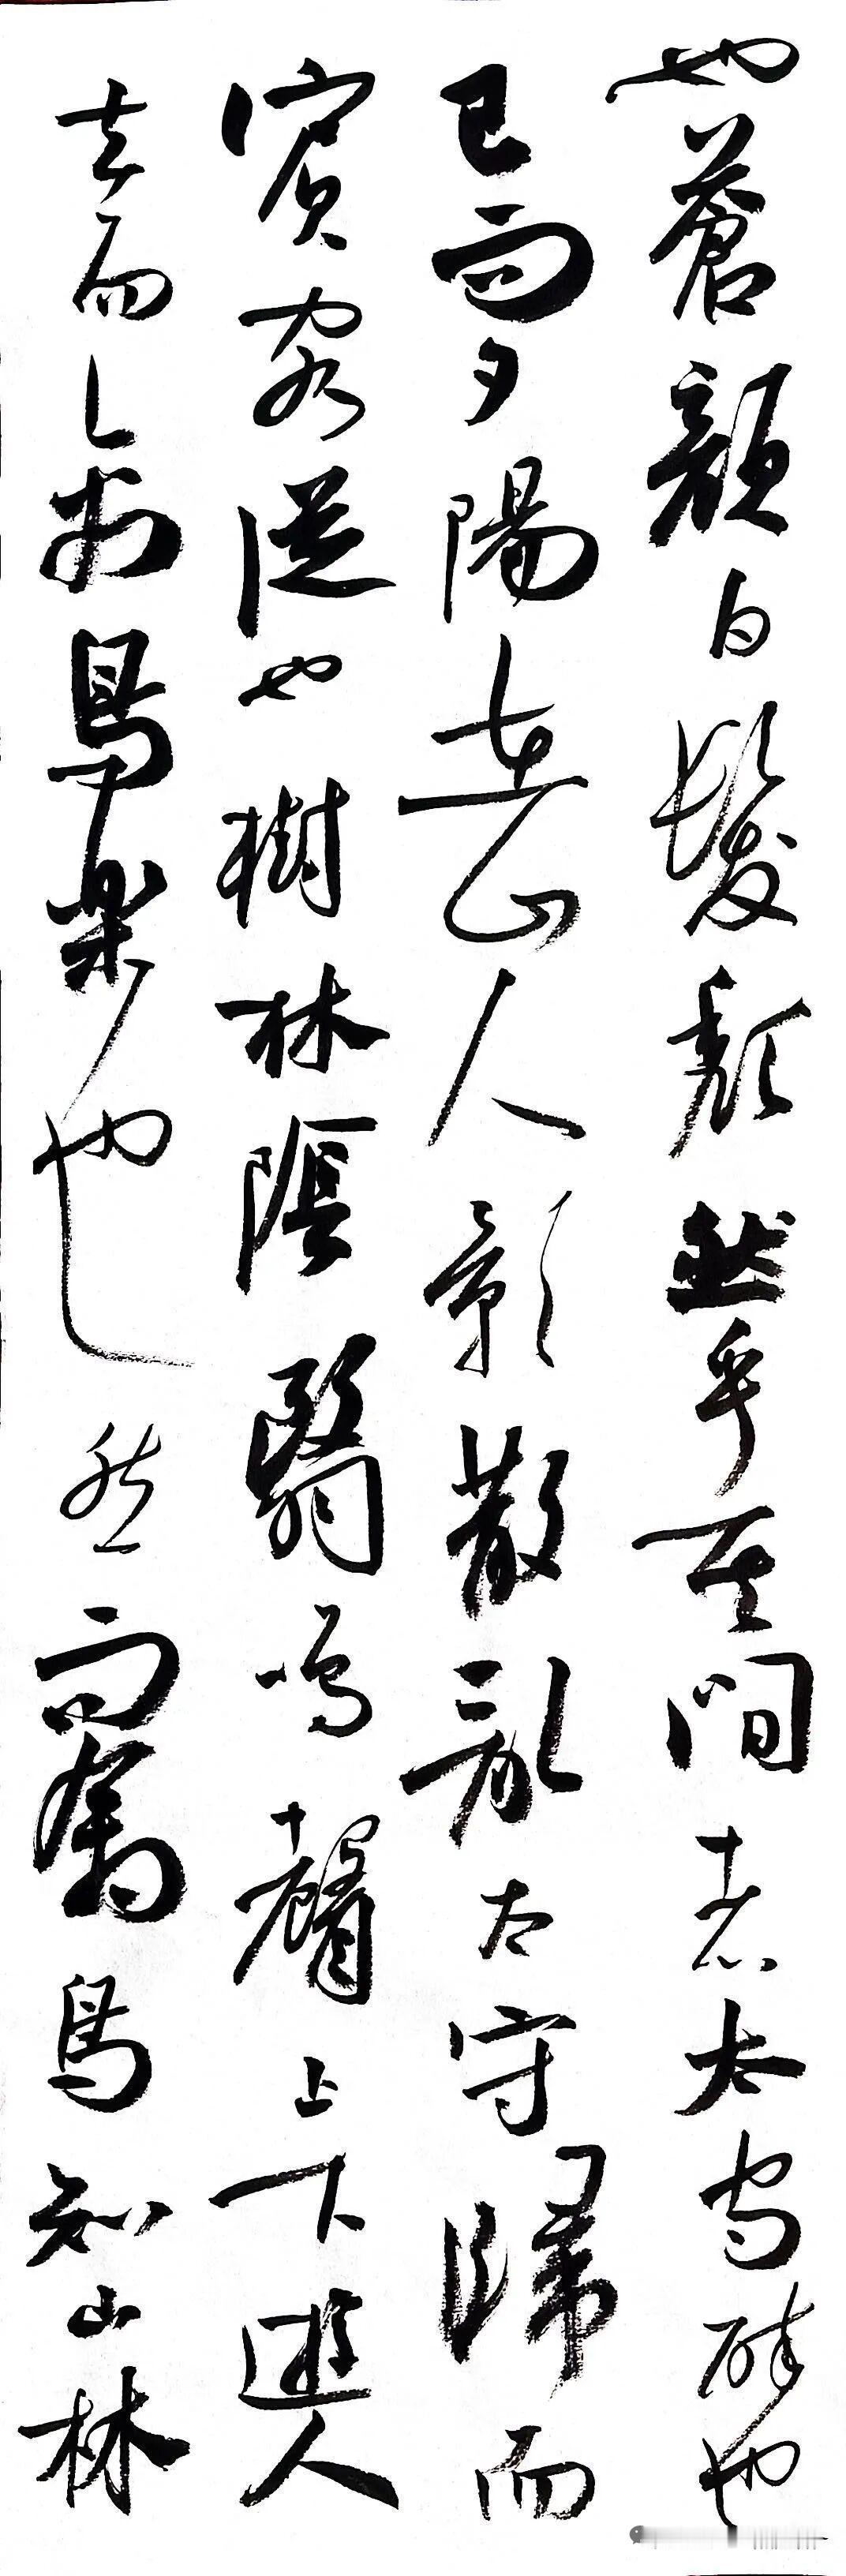 也蒼顏白髮頹然乎其間者太守醉也
已而夕陽在山人影散亂太守歸而
賓客從也樹林陰翳鳴聲上下遊人
去而禽鳥樂也然而禽鳥知山林